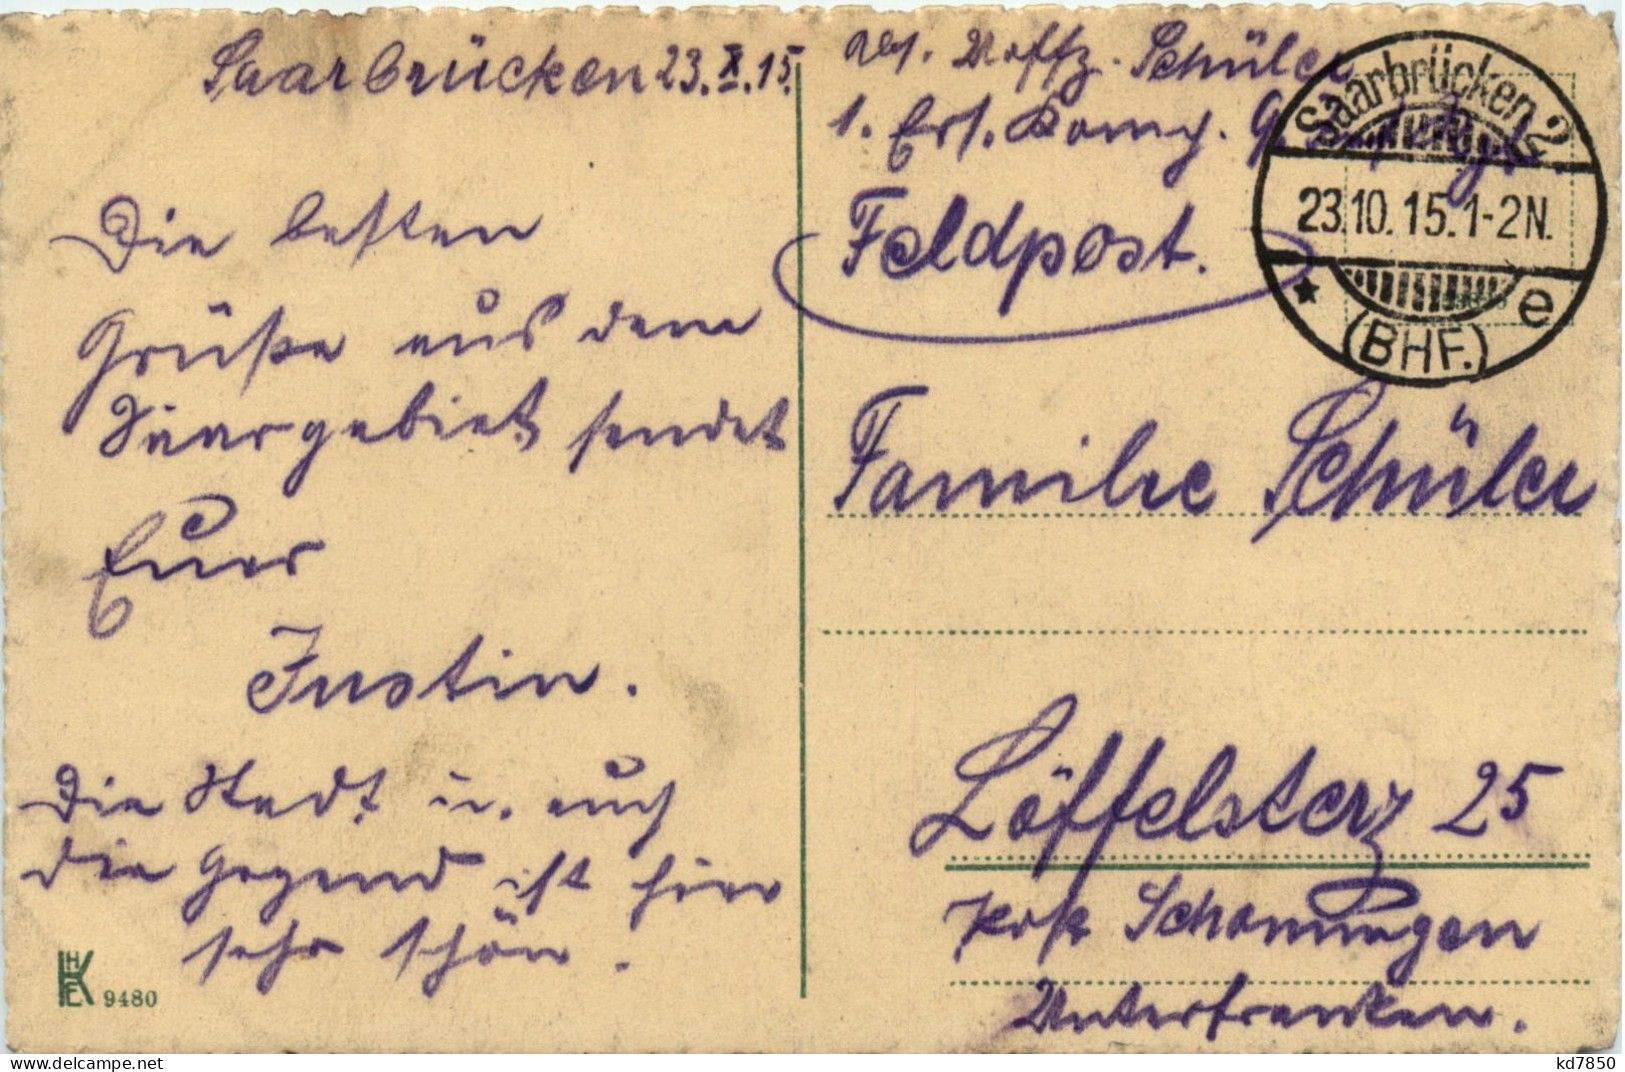 Saarbrücken 23.X.15.
Die besten
Grüße aus dem
Saargebiet sendet
Euer
Justin.
Die Stadt u. auch
die Gegend ist hier
sehr schön.
HKE 9480
Abs. Uoffz. Schüler
1. Ers. Komp.
Feldpost.
Saarbrücken 2
23.10.15.1-2N.
* e
(BHF.)
Familie Schüler
Löffelsterz 25
Post Schonungen
Unterfranken.
kd7850